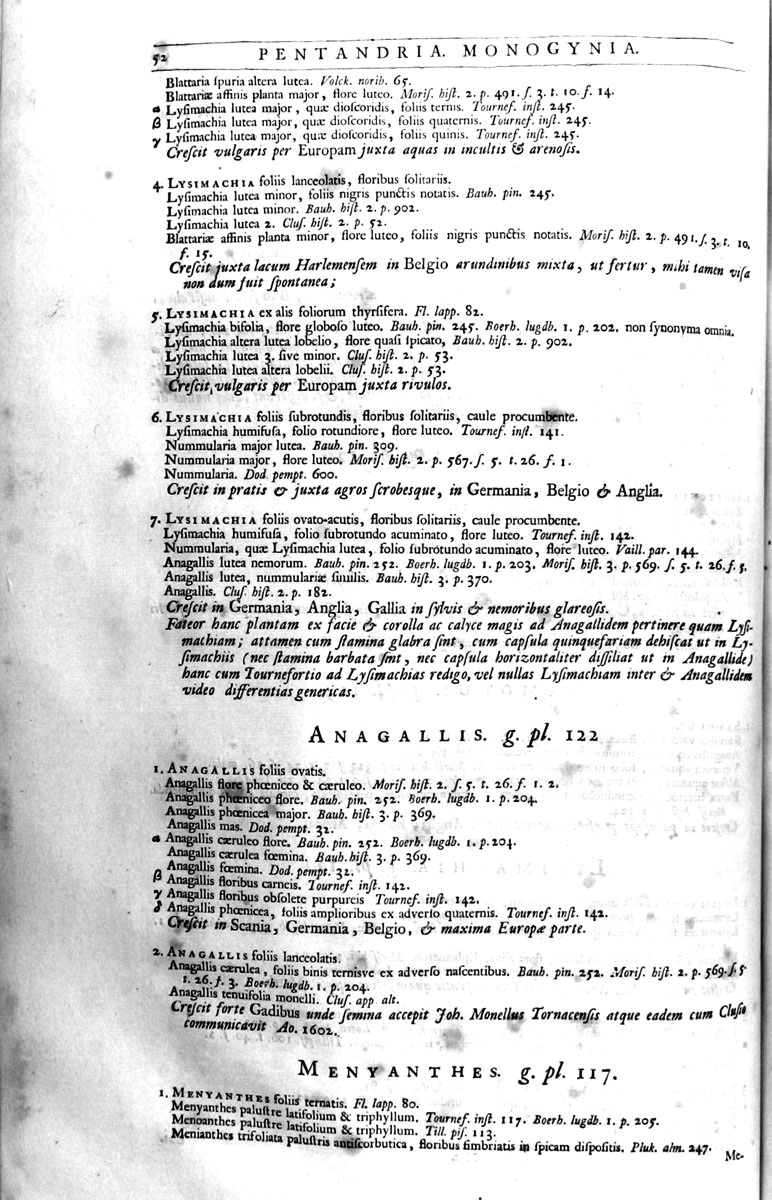 52
PENTANDRIA. MONOGYNIA.
Blattaria ſpuria altera lutea. Volck. norib. 65.
Blattariæ affinis planta major, flore luteo. Moriſ. hiſt. 2. p. 491. ſ. 3. t. 10. f. 14.
α Lyſimachia lutea major, quæ dioſcoridis, foliis ternis. Tournef. inſt. 245.
β Lyſimachia lutea major, quæ dioſcoridis, foliis quaternis. Tournef. inſt. 245.
γ Lyſimachia lutea major, quæ dioſcoridis, foliis quinis. Tournef. inſt. 245.
Creſcit vulgaris per Europam juxta aquas in incultis & arenoſis.
4. LYSIMACHIA foliis lanceolatis, floribus ſolitariis.
Lyſimachia lutea minor, foliis nigris punctis notatis. Bauh. pin. 245.
Lyſimachia lutea minor. Bauh. hiſt. 2. p. 902.
Lyſimachia lutea 2. Cluſ. hiſt. 2. p. 52.
Blattariæ affinis planta minor, flore luteo, foliis nigris punctis notatis. Moriſ. hiſt. 2. p. 491. ſ. 3. t. 10.
f. 15.
Creſcit juxta lacum Harlemenſem in Belgio arundinibus mixta, ut fertur, mihi tamen viſa
non dum fuit ſpontanea;
5. LYSIMACHIA ex alis foliorum thyrſifera. Fl. lapp. 82.
Lyſimachia bifolia, flore globoſo luteo. Bauh. pin. 245. Boerh. lugdb. 1. p. 202. non ſynonyma omnia.
Lyſimachia altera lutea lobelio, flore quaſi ſpicato, Bauh. hiſt. 2. p. 902.
Lyſimachia lutea 3. ſive minor. Cluſ. hiſt. 2. p. 53.
Lyſimachia lutea altera lobelii. Cluſ. hiſt. 2. p. 53.
Creſcit vulgaris per Europam juxta rivulos.
6. LYSIMACHIA foliis ſubrotundis, floribus ſolitariis, caule procumbente.
Lyſimachia humifuſa, folio rotundiore, flore luteo. Tournef. inſt. 141.
Nummularia major lutea. Bauh. pin. 309.
Nummularia major, flore luteo. Moriſ. hiſt. 2. p. 567. ſ. 5. t. 26. f. 1.
Nummularia. Dod. pempt. 600.
Creſcit in pratis & juxta agros ſcrobesque, in Germania, Belgio & Anglia.
7. LYSIMACHIA foliis ovato-acutis, floribus ſolitariis, caule procumbente.
Lyſimachia humifuſa, folio ſubrotundo acuminato, flore luteo. Tournef. inſt. 142.
Nummularia, quæ Lyſimachia lutea, folio ſubrotundo acuminato, flore luteo. Vaill. par. 144.
Anagallis lutea nemorum. Bauh. pin. 252. Boerh. lugdb. 1. p. 203. Moriſ. hiſt. 3. p. 569. ſ. 5. t. 26. f. 5.
Anagallis lutea, nummulariæ ſimilis. Bauh. hiſt. 3. p. 370.
Anagallis. Cluſ. hiſt. 2. p. 182.
Creſcit in Germania, Anglia, Gallia in ſylvis & nemoribus glareoſis.
Fateor hanc plantam ex facie & corolla ac calyce magis ad Anagallidem pertinere quam Lyſi-
machiam; attamen cum ſtamina glabra ſint, cum capſula quinquefariam dehiſcat ut in Ly-
ſimachiis (nec ſtamina barbata ſint, nec capſula horizontaliter diſſiliat ut in Anagallide)
hanc cum Tournefortio ad Lyſimachias redigo, vel nullas Lyſimachiam inter & Anagallidem
video differentias genericas.
ANAGALLIS. g. pl. 122
1. ANAGALLIS foliis ovatis.
Anagallis flore phœniceo & cæruleo. Moriſ. hiſt. 2. ſ. 5. t. 26. f. 1. 2.
Anagallis phœniceo flore. Bauh. pin. 252. Boerh. lugdb. 1. p. 204.
Anagallis phœnicea major. Bauh. hiſt. 3. p. 369.
Anagallis mas. Dod. pempt. 32.
α Anagallis cæruleo flore. Bauh. pin. 252. Boerh. lugdb. 1. p. 204.
Anagallis cærulea fœmina. Bauh. hiſt. 3. p. 369.
Anagallis fœmina. Dod. pempt. 32.
β Anagallis floribus carneis. Tournef. inſt. 142.
γ Anagallis floribus obſolete purpureis Tournef. inſt. 142.
δ Anagallis phœnicea, foliis amplioribus ex adverſo quaternis. Tournef. inſt. 142.
Creſcit in Scania, Germania, Belgio, & maxima Europæ parte.
2. ANAGALLIS foliis lanceolatis.
Anagallis cærulea, foliis binis ternisve ex adverſo naſcentibus. Bauh. pin. 252. Moriſ. hiſt. 2. p. 569. ſ. 5
t. 26. f. 3. Boerh. lugdb. 1. p. 204.
Anagallis tenuifolia monelli. Cluſ. app alt.
Creſcit forte Gadibus unde ſemina accepit Joh. Monellus Tornacenſis atque eadem cum Cluſio
communicavit Ao. 1602.
MENYANTHES. g. pl. 117.
1. MENYANTHES foliis ternatis. Fl. lapp. 80.
Menyanthes paluſtre latifolium & triphyllum. Tournef. inſt. 117. Boerh. lugdb. 1. p. 205.
Menoanthes paluſtre latifolium & triphyllum. Till. piſ. 113.
Menianthes trifoliata paluſtris antiſcorbutica, floribus fimbriatis in ſpicam diſpoſitis. Pluk. alm. 247.
Me-